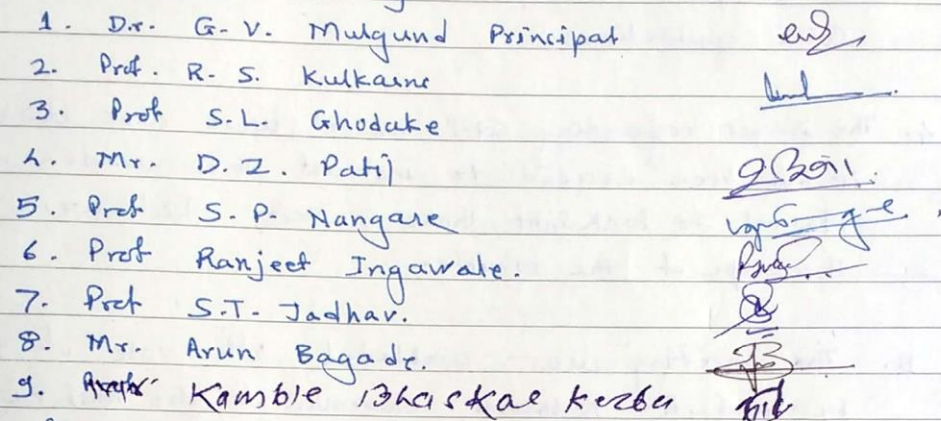 1. Dr. G. V. Mulgund Principal
2. Prof. R. S. Kulkarni
3. Prof S.L. Ghodake
4. Mr D. Z. Patil
5. Prof S. P. Nangare
6. Prof Ranjeet Ingawale.
7. Prof S.T. Jadhav.
8. Mr. Arun Bagade.
9. Kamble Bhaskar